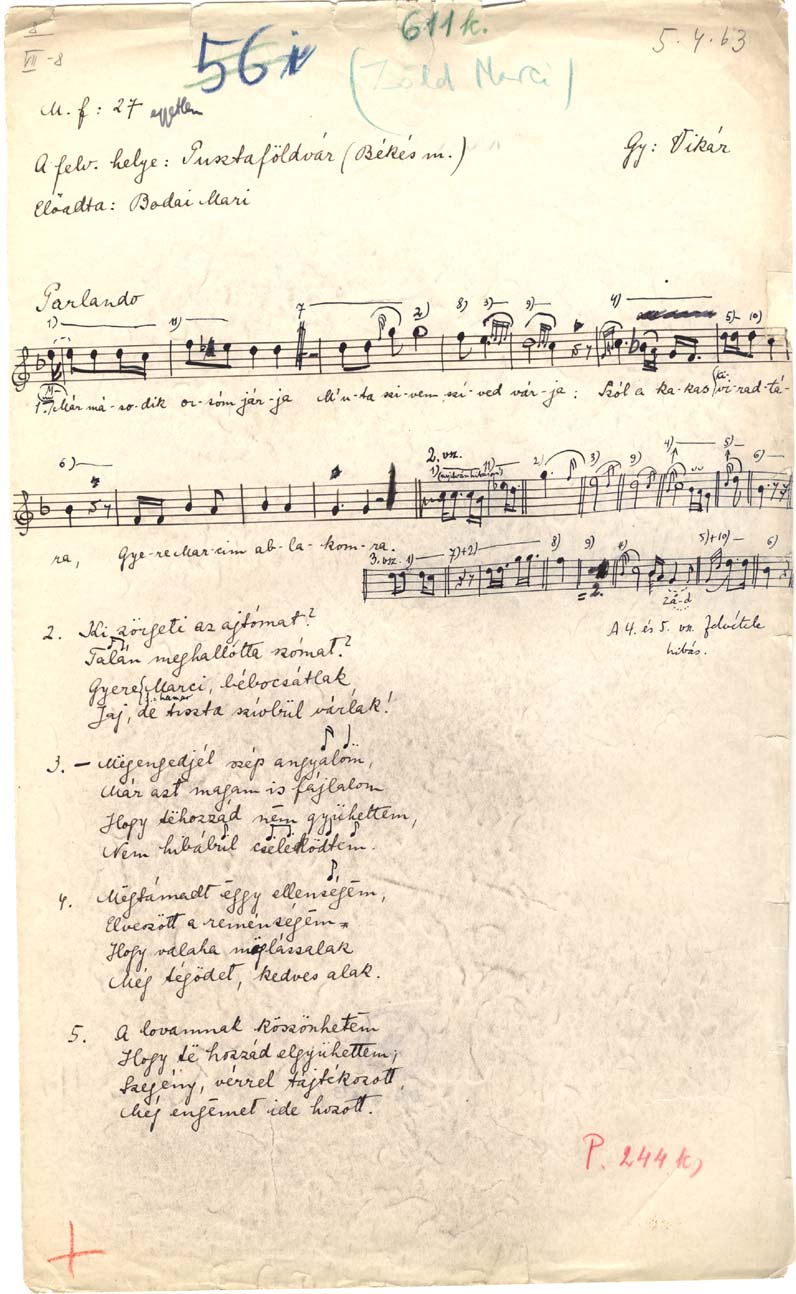 8
VII-8
56
611 k.
(Zöld Marci)
5.4.63
M. f: 27 egyetlen
A felv. helye: Pusztaföldvár (Békés m.)
Gy: Vikár
Előadta: Bodai Mari
Parlando
1) 11) 7 2) 8) 3) 9) 4) 5) 10)
1. Már má-so-dik or-sóm jár-ja M'u-ta szi-vem szí-ved vár-ja: Szól a ka-kas vi-rad-tá-
6)
2. vsz.
1) 11) 2) 3) 9) 4) 5) 6)
ra, Gye-re Mar-cim ab-la-kom-ra.
3. vsz. 1) 7)+2) 8) 9) 4) 5)+10) 6)
=2.
zá-d
A 4. és 5. vsz. felvétele
hibás.
2. Ki zörgeti az ajtómat?
Talán meghallotta szómat?
Gyere Marci, bébocsátlak
hamar
Jaj, de tiszta szívbül várlak!
3. – Mëgengedjél szép angyalom,
Már azt magam is fájlalom
Hogy tëhozzád nëm gyühettem,
Nem hibábúl cseleködtem.
4. Mëgtámadt ëggy ellenségëm,
Elveszött a reménségëm
Hogy valaha mëglássalak
Még tégödet, kedves alak.
5. A lovamnak köszönhetëm
Hogy të hozzád elgyühettem,
Szegény, vérrel tajtékozott,
Még engëmet ide hozott.
P. 244 k,